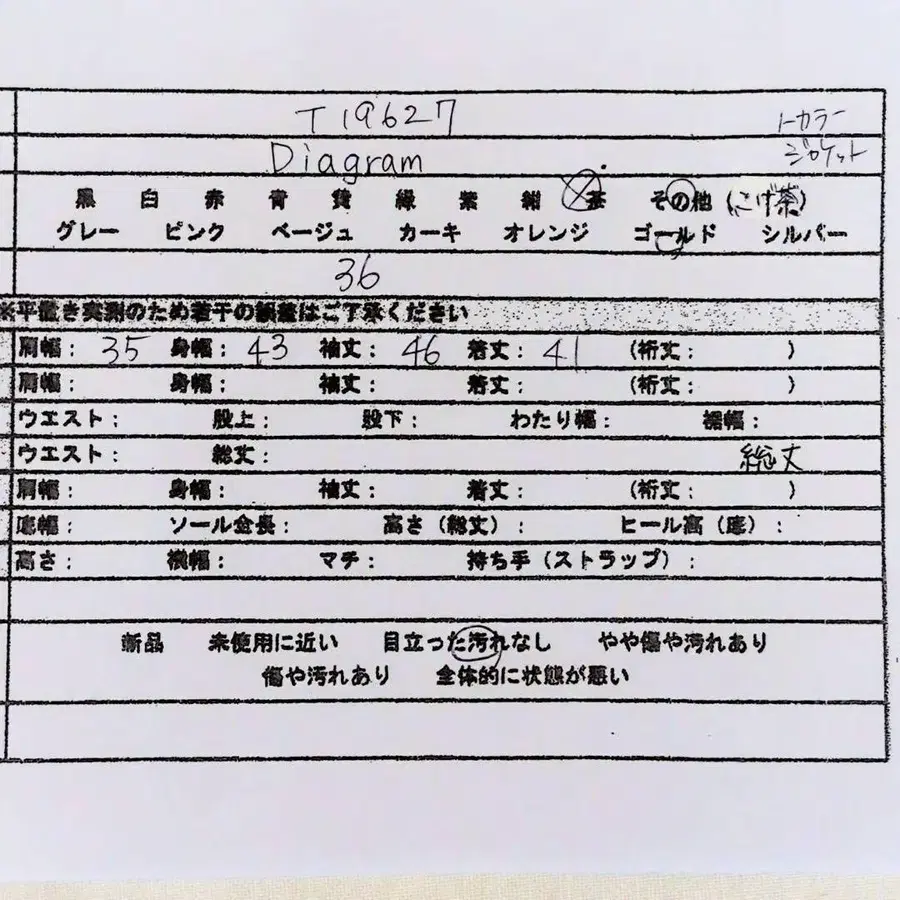 T19627
ノーカラー
Diagram
ジャケット
黒 白 赤 青 黄 緑 紫 紺 茶 その他 (こげ茶)
グレー ピンク ベージュ カーキ オレンジ ゴールド シルバー
36
※平置き実測のため若干の誤差はご了承ください
肩幅: 35 身幅: 43 袖丈: 46 着丈: 41 (裄丈: )
肩幅: 身幅: 袖丈: 着丈: (裄丈: )
ウエスト: 股上: 股下: わたり幅: 裾幅:
ウエスト: 総丈: 総丈
肩幅: 身幅: 袖丈: 着丈: (裄丈: )
底幅: ソール全長: 高さ(総丈): ヒール高(底):
高さ: 横幅: マチ: 持ち手(ストラップ):
新品 未使用に近い 目立った汚れなし やや傷や汚れあり
傷や汚れあり 全体的に状態が悪い